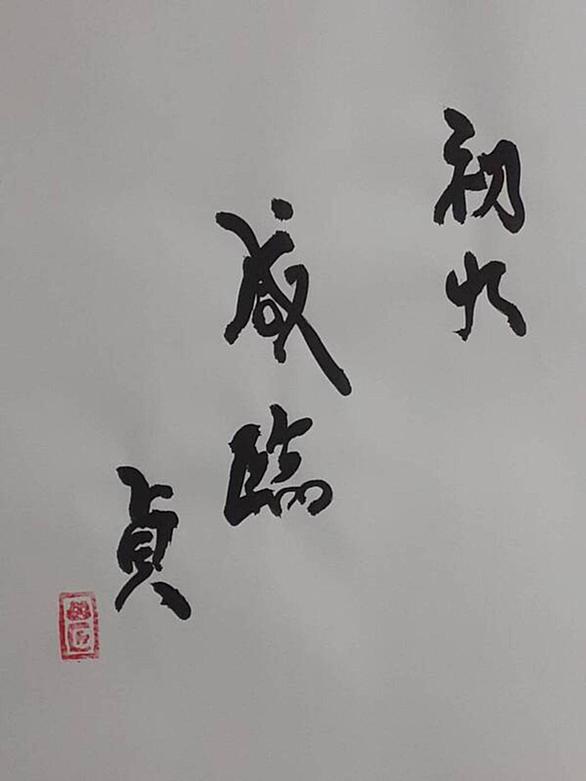 初九
咸臨
貞